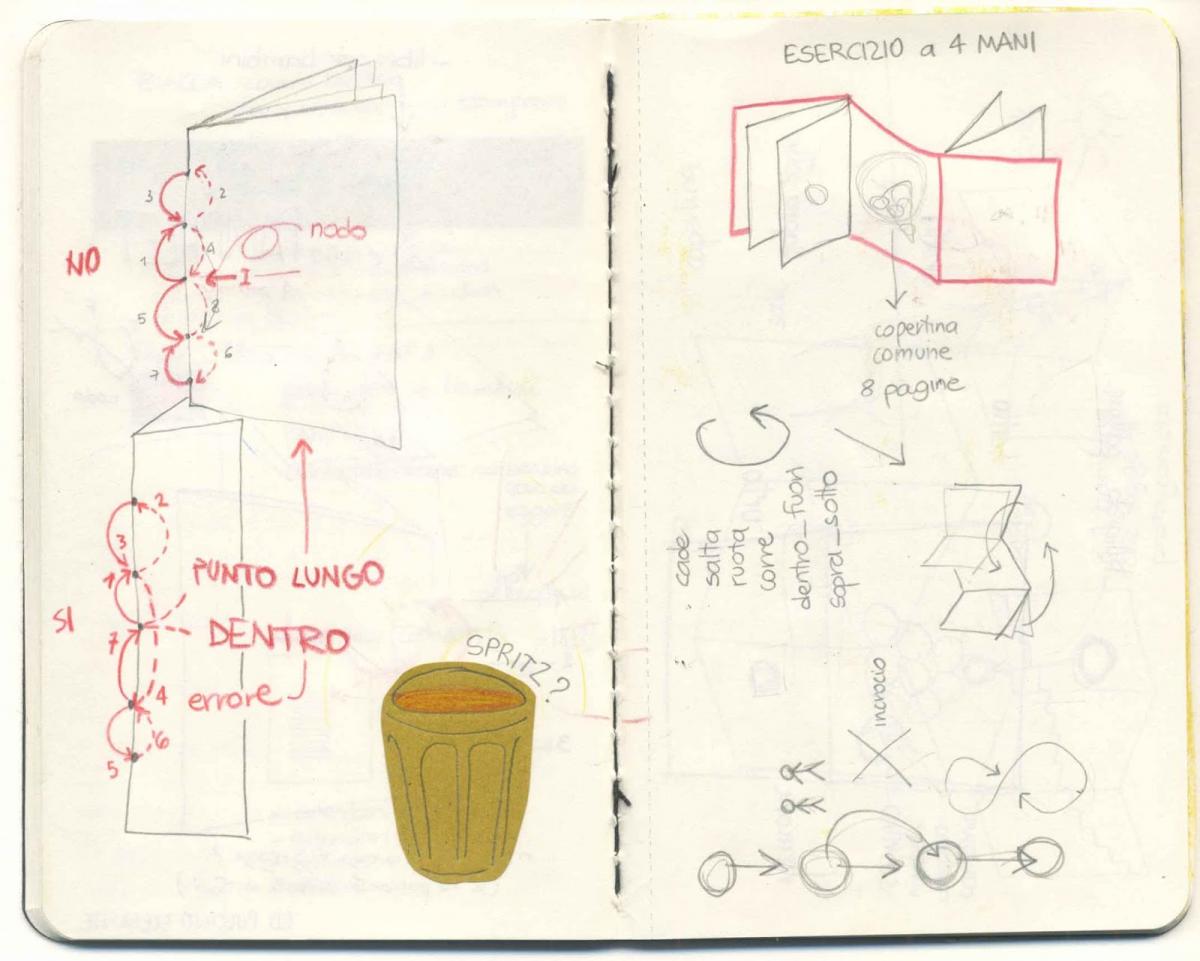 3
2
nodo
NO
1
4
1
5
8
6
7
2
3
1
PUNTO LUNGO
SI
7
DENTRO
4
errore
6
5
SPRITZ?
ESERCIZIO a 4 MANI
copertina
comune
8 pagine
cade
salta
ruota
corre
dentro_fuori
sopra_sotto
incrocio